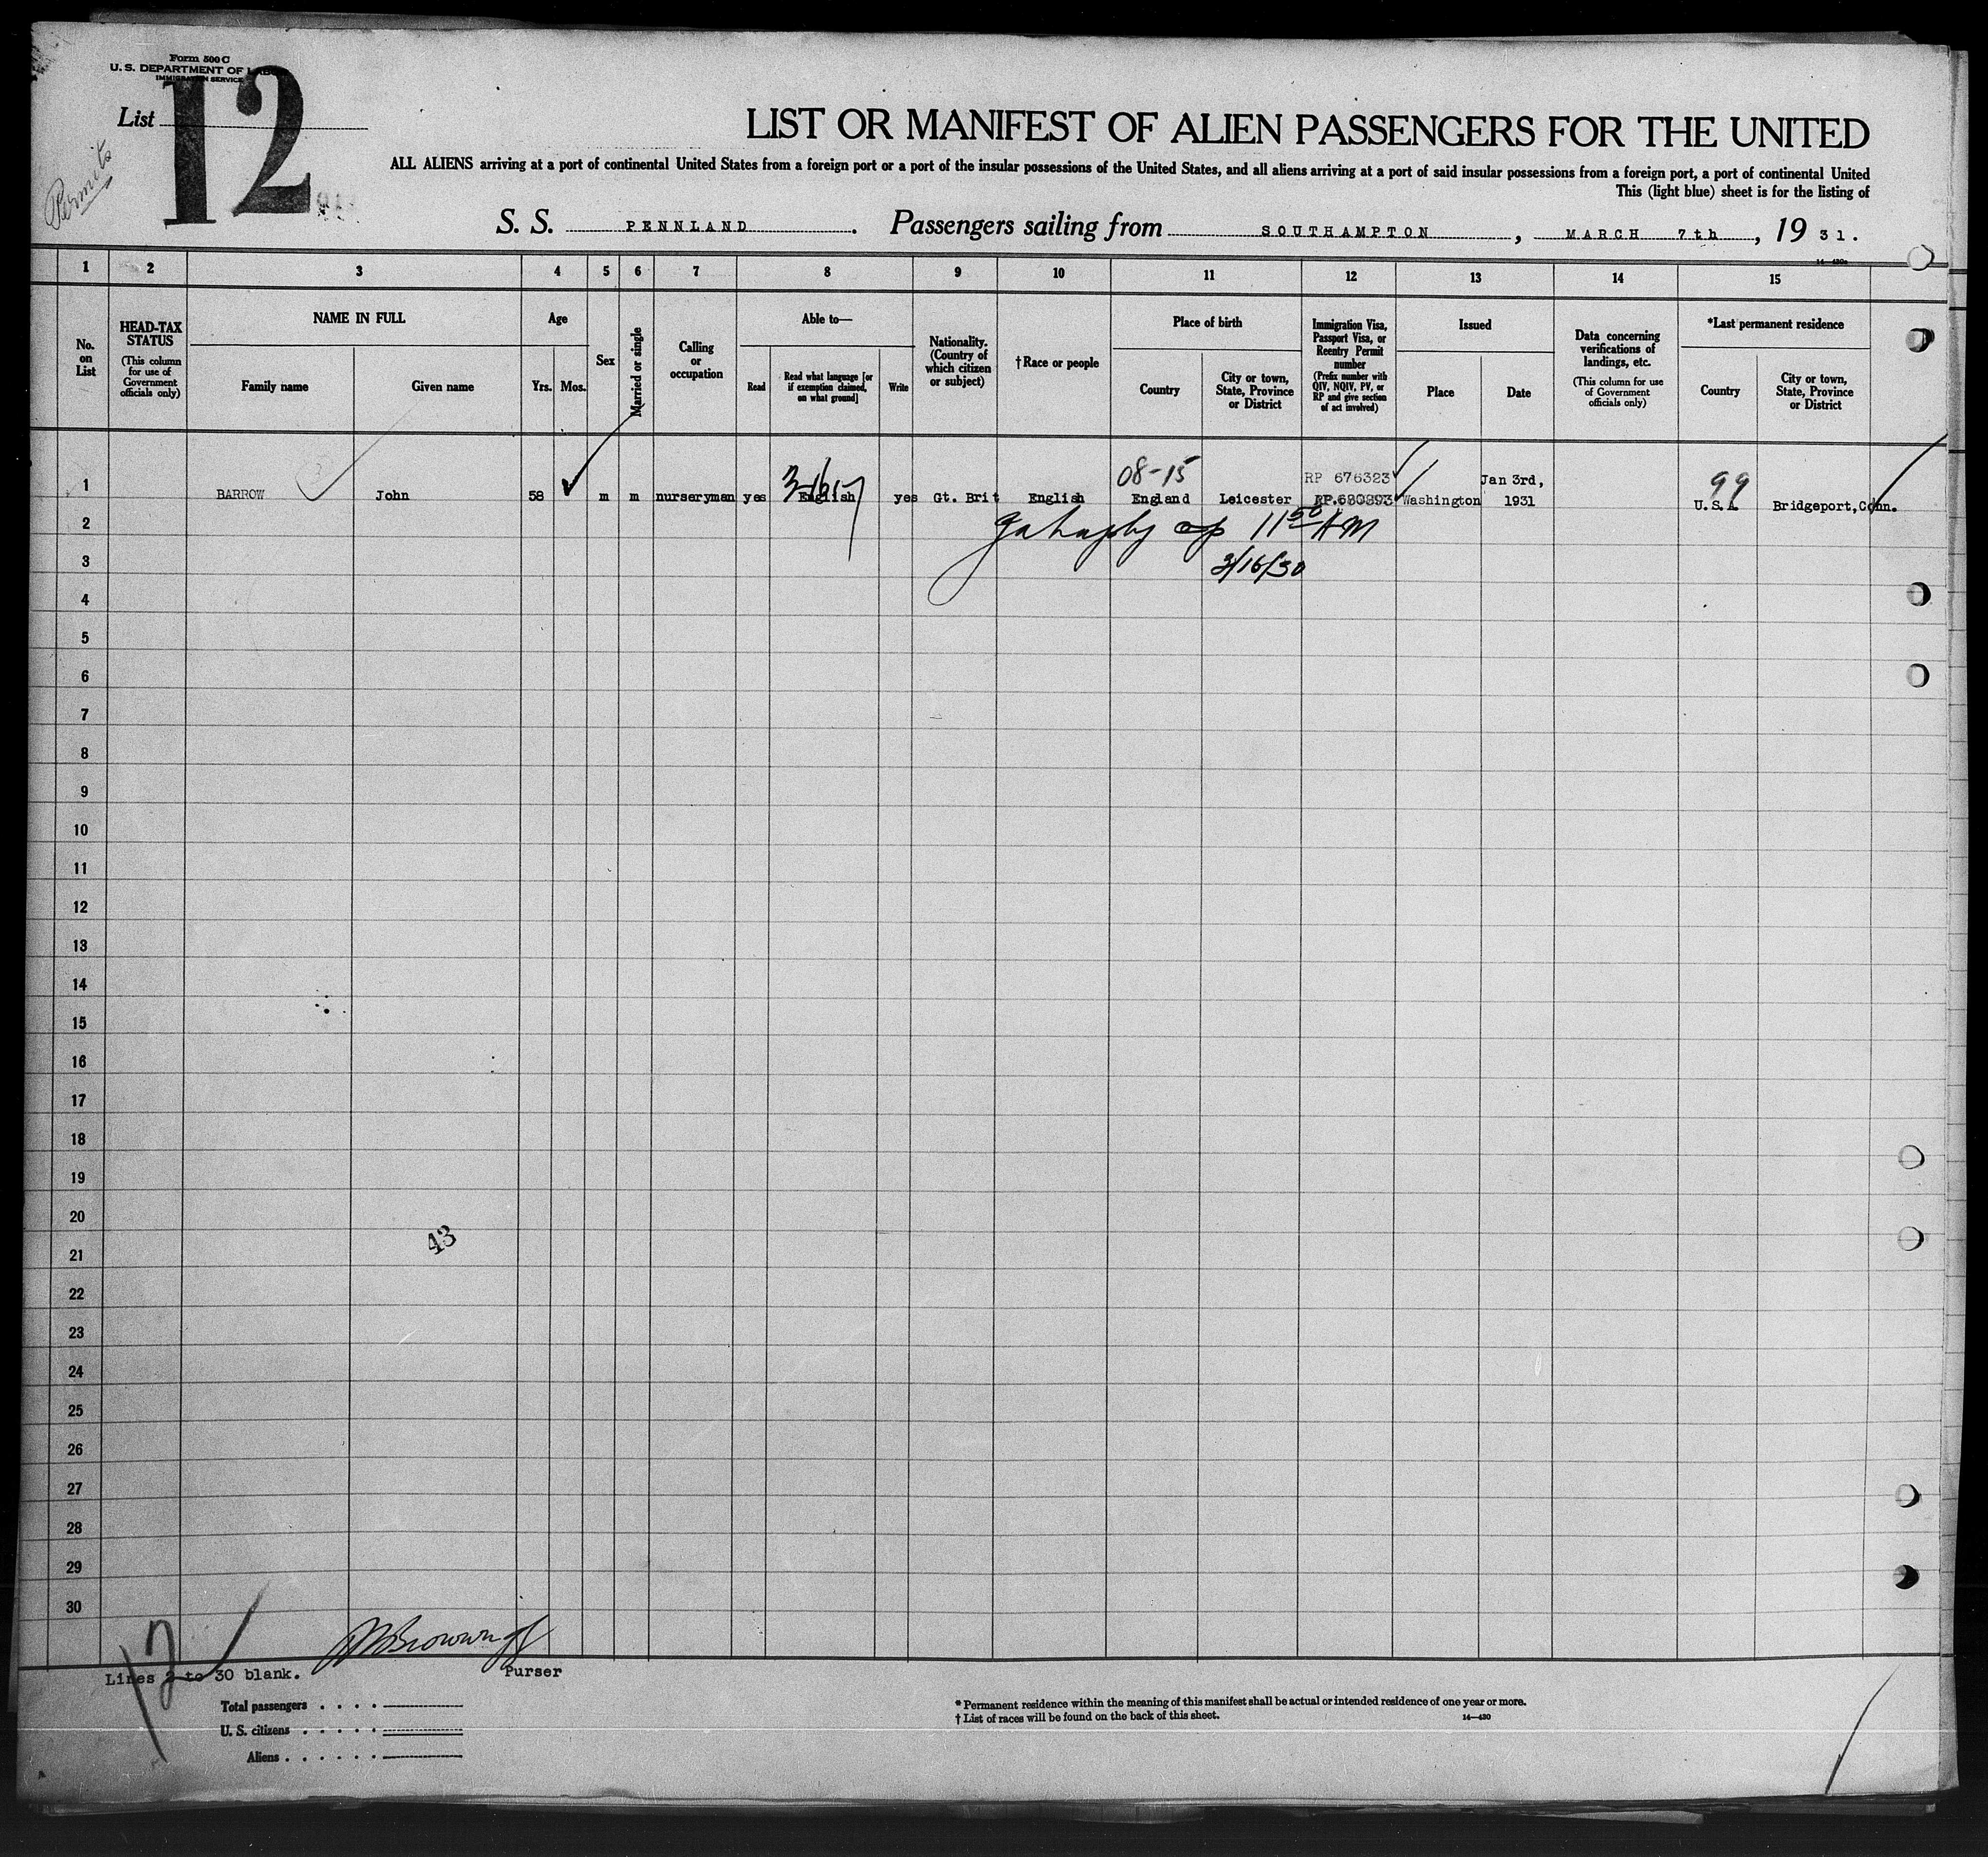 Form 500 C
U. S. DEPARTMENT OF LABOR
IMMIGRATION SERVICE
List 12
Permits
LIST OR MANIFEST OF ALIEN PASSENGERS FOR THE UNITED
ALL ALIENS arriving at a port of continental United States from a foreign port or a port of the insular possessions of the United States, and all aliens arriving at a port of said insular possessions from a foreign port, a port of continental United
This (light blue) sheet is for the listing of
S. S. PENNLAND . Passengers sailing from SOUTHAMPTON , MARCH 7th , 19 31.
14—430a
1 2 3 4 5 6 7 8 9 10 11 12 13 14 15
No. on List
HEAD-TAX STATUS
(This column for use of Government officials only)
NAME IN FULL
Family name
Given name
Age
Yrs.
Mos.
Sex
Married or single
Calling or occupation
Able to—
Read
Read what language [or if exemption claimed, on what ground]
Write
Nationality. (Country of which citizen or subject)
†Race or people
Place of birth
Country
City or town, State, Province or District
Immigration Visa, Passport Visa, or Reentry Permit number
(Prefix number with QIV, NQIV, PV, or RP and give section of act involved)
Issued
Place
Date
Data concerning verifications of landings, etc.
(This column for use of Government officials only)
*Last permanent residence
Country
City or town, State, Province or District
08-15 RP 676323 Jan 3rd, 99
1 BARROW John 58 m m nurseryman yes English yes Gt. Brit English England Leicester RP.680893 Washington 1931 U.S.A. Bridgeport,Conn.
2 11 50 AM
3 3/16/30
4
5
6
7
8
9
10
11
12
13
14
15
16
17
18
19
20
43
21
22
23
24
25
26
27
28
29
30
12
Lines 2 to 30 blank.
Purser
Total passengers
U. S. citizens
Aliens
* Permanent residence within the meaning of this manifest shall be actual or intended residence of one year or more.
† List of races will be found on the back of this sheet.
14—430